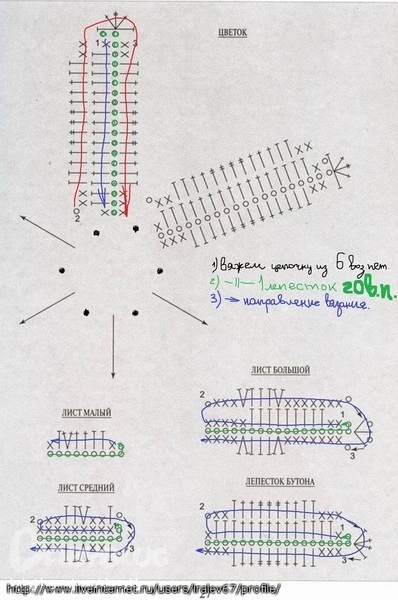 ЦВЕТОК
1
3
2
1) Вяжем цепочку из 6 воз пет
2) -//- 1 лепесток 20 в.п.
3) → направление вязания.
ЛИСТ БОЛЬШОЙ
2
1
3
ЛИСТ МАЛЫЙ
ЛИСТ СРЕДНИЙ
2
1
3
ЛЕПЕСТОК БУТОНА
2
1
3
http://www.liveinternet.ru/users/